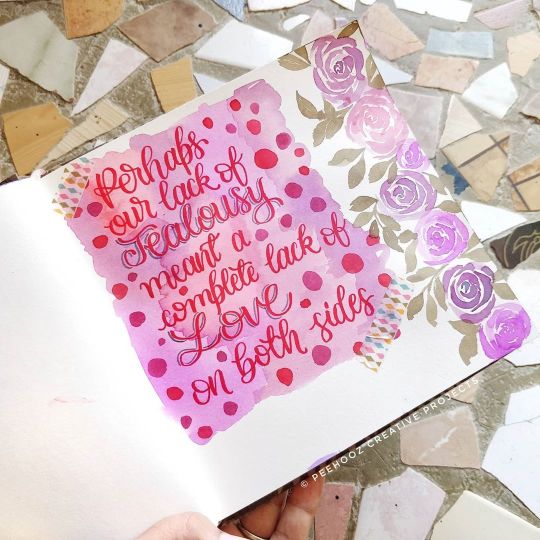 Perhaps
our lack of
Jealousy
meant a
complete lack of
Love
on both sides
© PEEHOOZ CREATIVE PROJECTS